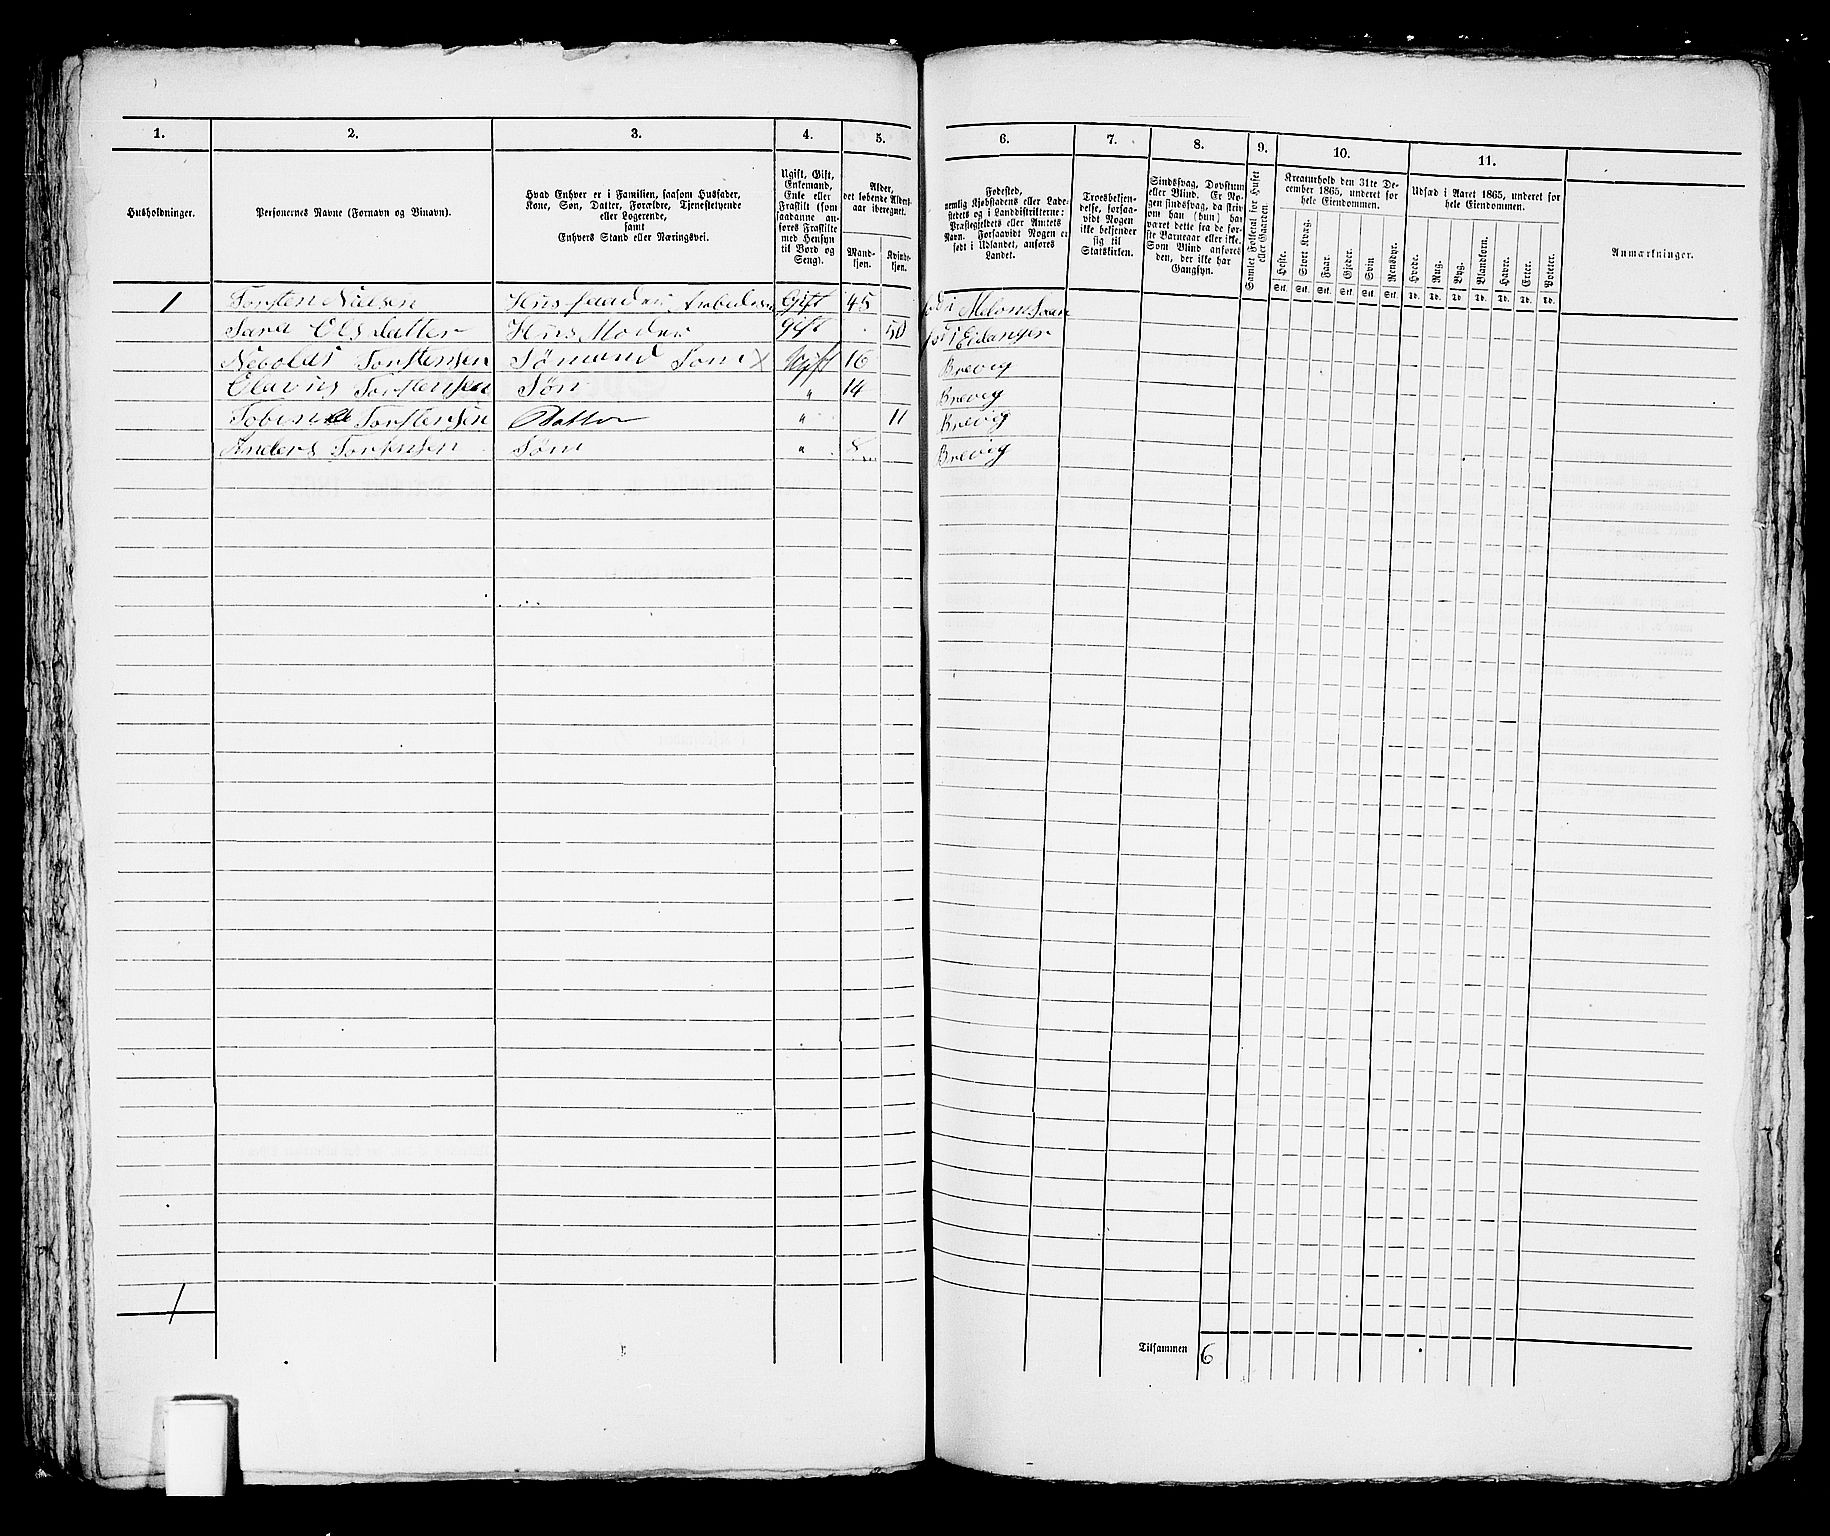 1. 2. 3. 4. 5. 6. 7. 8. 9. 10. 11.
Husholdninger.
Personernes Navne (Fornavn og Binavn).
Hvad Enhver er i Familien, saasom Husfader,
Kone, Søn, Datter, Forældre, Tjenestetyende
eller Logerende,
samt
Enhvers Stand eller Næringsvei.
Ugift, Gift,
Enkemand,
Enke eller
Fraskilt (som
saadanne an-
føres Fraskilte
med Hensyn
til Bord og
Seng).
Alder,
det løbende Alders-
aar iberegnet.
Mand-
kjøn.
Kvinde-
kjøn.
Fødested,
nemlig Kjøbstadens eller Lade-
stedets og i Landdistrikterne:
Præstegjeldets eller Amtets
Navn. Forsaavidt Nogen er
født i Udlandet, anføres
Landet.
Troesbekjen-
delse, forsaa-
vidt Nogen
ikke bekjender
sig til
Statskirken.
Sindssvag, Døvstum
eller Blind. Er No-
gen sindssvag, da skriv
om han (hun) har
været dette fra de før-
ste Barneaar eller ikke.
Som Blind anføres
den, der ikke har
Gangsyn.
Samlet Folketal for Huset
eller Gaarden.
Kreaturhold den 31te De-
cember 1865, underet for
hele Eiendommen.
Heste. Stort Kvæg. Faar. Gjeder. Svin Rensdyr.
Stk. Stk. Stk. Stk. Stk. Stk.
Udsæd i Aaret 1865, underet for
hele Eiendommen.
Hvede. Rug. Byg. Blandkorn. Havre. Erter. Poteter.
Td. Td. Td Td. Td. Td. Td.
Anmærkninger.
1 Torsten Nielsen Husfaader Arbeidsm Gift 45
Sara Olsdatter Hus Moder gift 50 Eidanger
Nicolai Torstensen Sømand Søn x Ugift 16 Brevig
Olavus Torstensen Søn " 14 Brevig
Torstensen Datter " 11 Brevig
Anders Torstensen Søn " 8 Brevig
1
Tilsammen 6